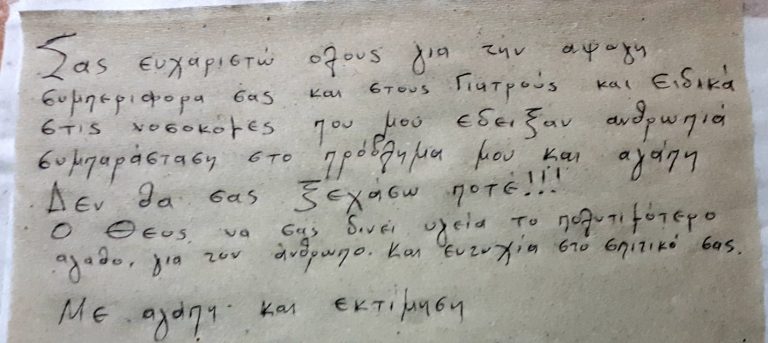 Σας ευχαριστώ ολους για την αψογη
συμπεριφορα σας και στους Γιατρούς και Ειδικά
στις νοσοκόμες που μού εδειξαν ανθρωπιά
συμπαράσταση στο πρόβλημα μου και αγάπη
Δεν θα σας ξεχάσω ποτέ!!!
Ο Θεος να σας δινει υγεία το πολυτιμότερο
αγαθο, για τον άνθρωπο. Και ευτυχία στο σπιτικό σας.
Με αγάπη και εκτίμηση